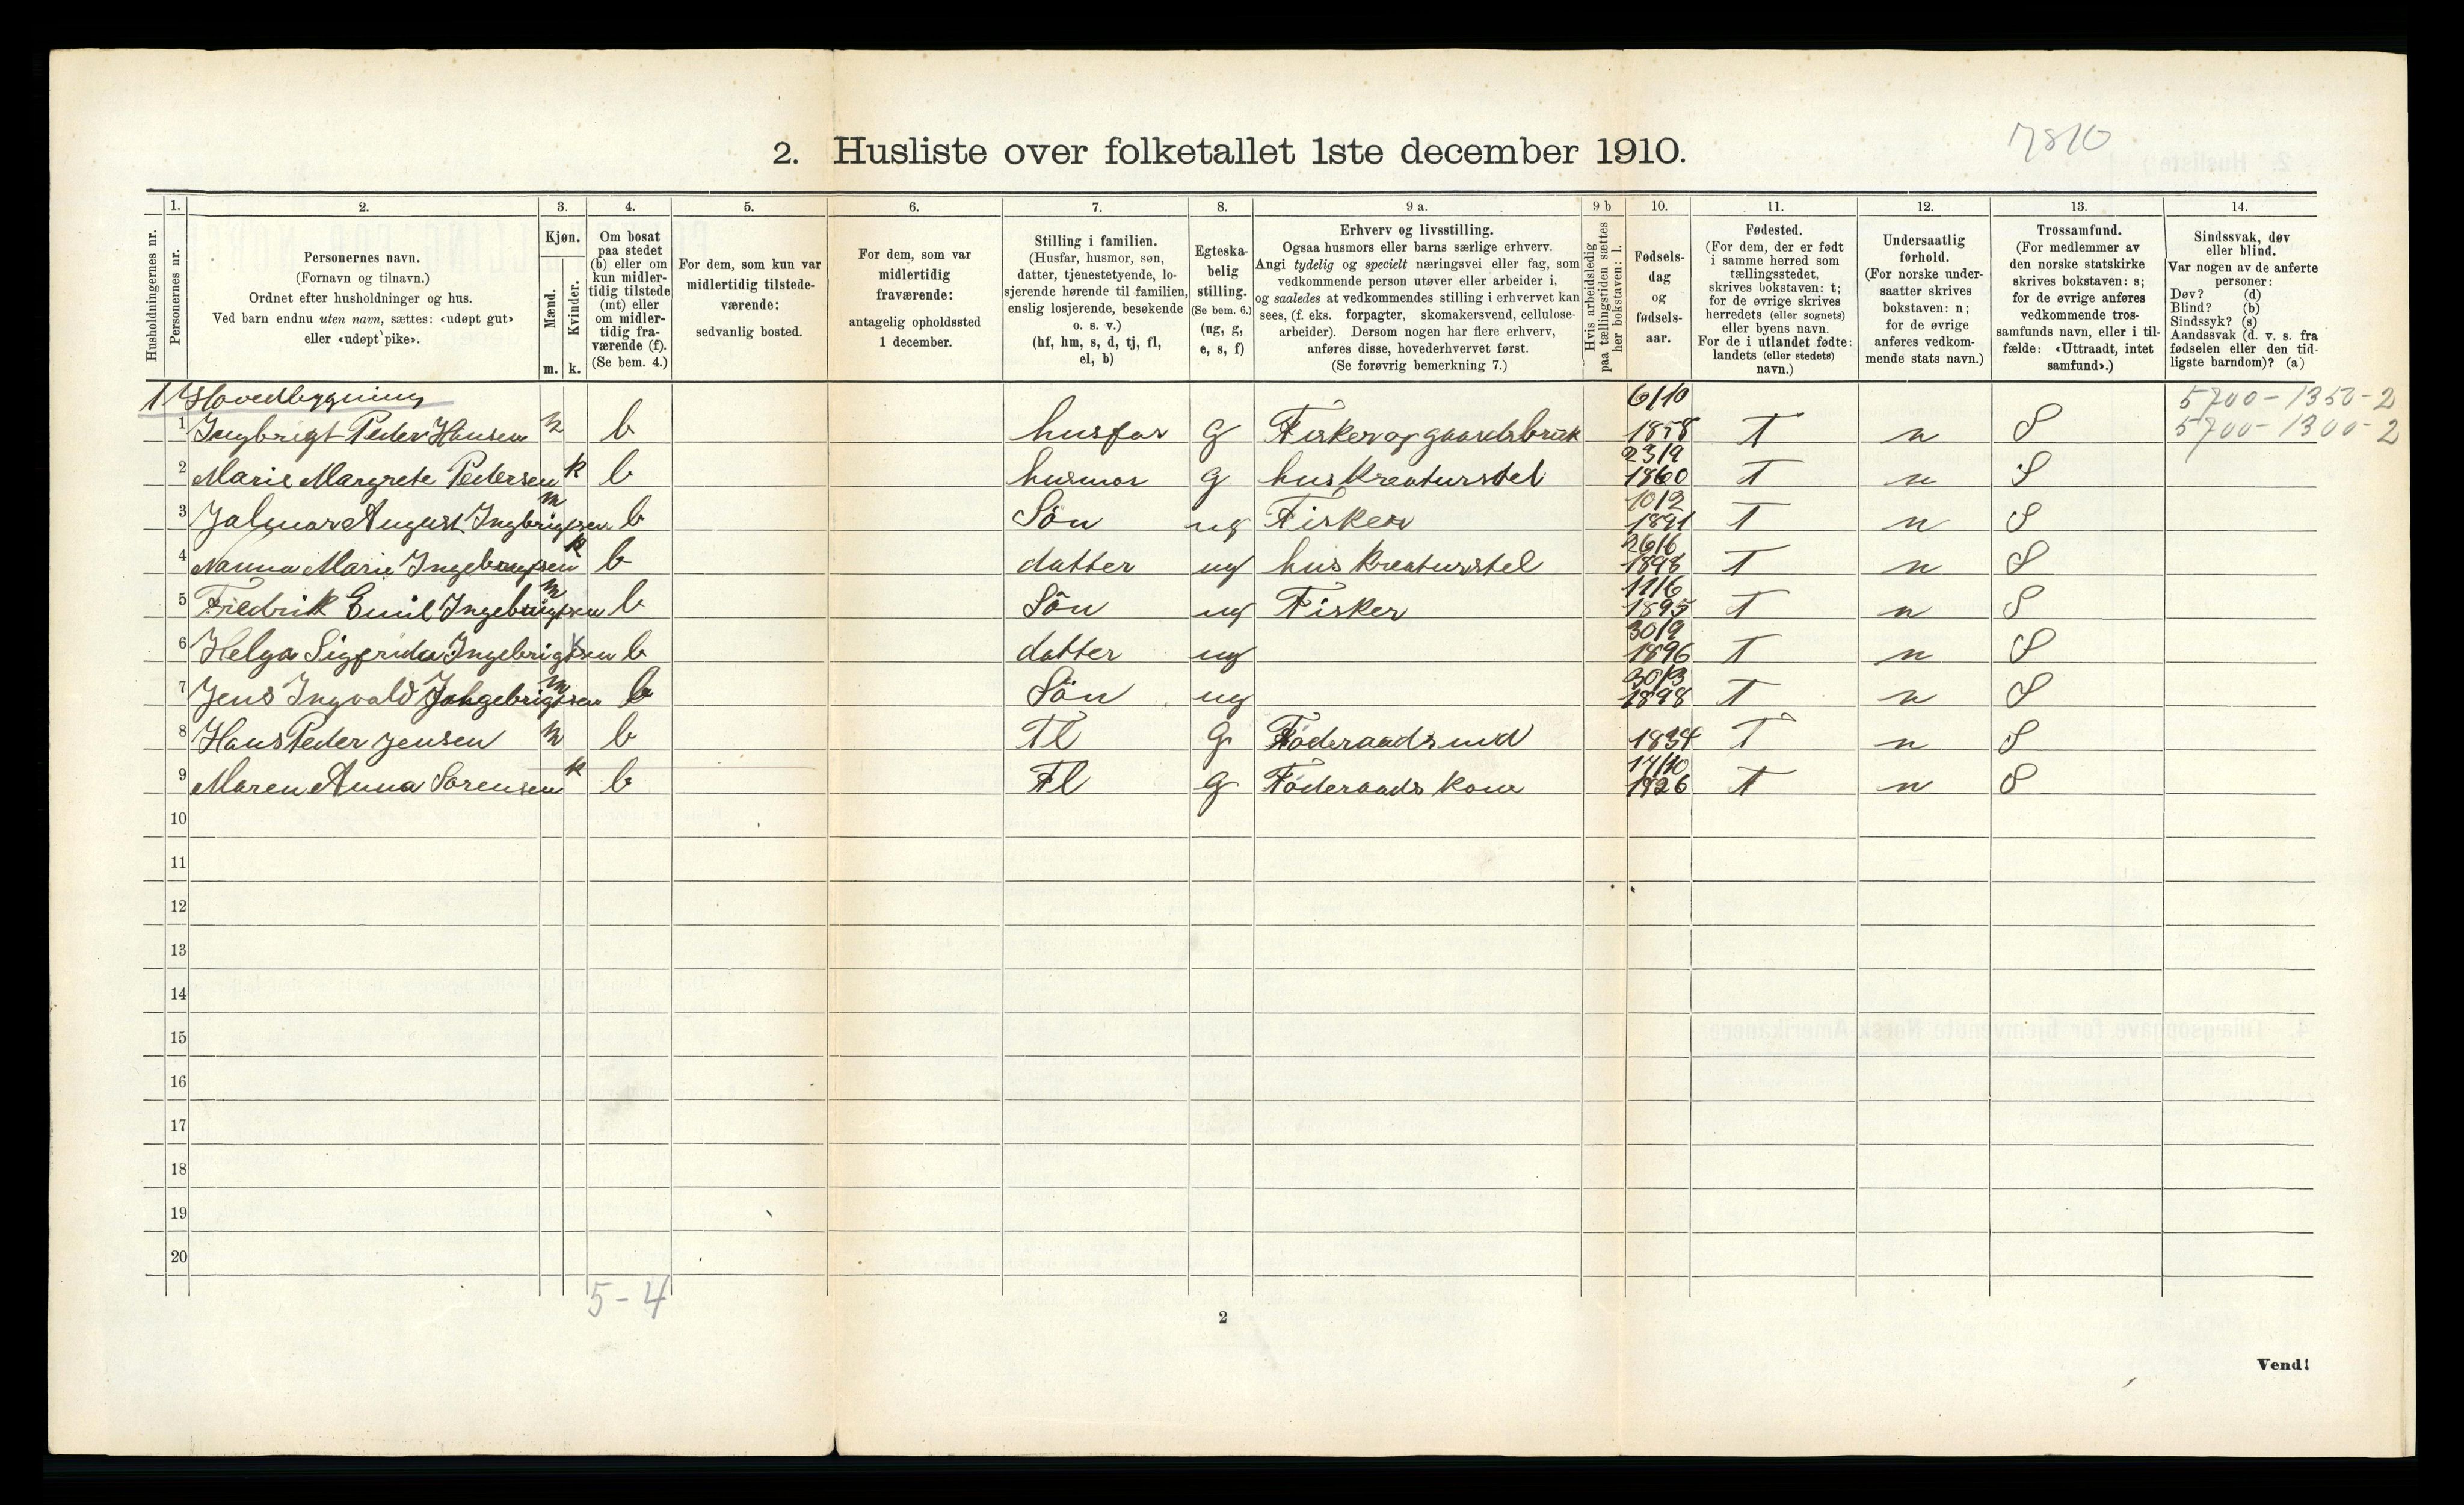 7810
2. Husliste over folketallet 1ste december 1910.
Husholdningernes nr.
1.
Personernes nr.
2.
Personernes navn.
(Fornavn og tilnavn.)
Ordnet efter husholdninger og hus.
Ved barn endnu uten navn, sættes: «udøpt gut»
eller «udøpt pike».
3.
Kjøn.
Mænd.
Kvinder.
m. k.
4.
Om bosat
paa stedet
(b) eller om
kun midler-
tidig tilstede
(mt) eller
om midler-
tidig fra-
værende (f).
(Se bem. 4.)
5.
For dem, som kun var
midlertidig tilstede-
værende:
sedvanlig bosted.
6.
For dem, som var
midlertidig
fraværende:
antagelig opholdssted
1 december.
7.
Stilling i familien.
(Husfar, husmor, søn,
datter, tjenestetyende, lo-
sjerende hørende til familien,
enslig losjerende, besøkende
o. s. v.)
(hf, hm, s, d, tj, fl,
el, b)
8.
Egteska-
belig
stilling.
(Se bem. 6.)
(ug, g,
e, s, f)
9 a.
Erhverv og livsstilling.
Ogsaa husmors eller barns særlige erhverv.
Angi tydelig og specielt næringsvei eller fag, som
vedkommende person utøver eller arbeider i,
og saaledes at vedkommendes stilling i erhvervet kan
sees, (f. eks. forpagter, skomakersvend, cellulose-
arbeider). Dersom nogen har flere erhverv,
anføres disse, hovederhvervet først.
(Se forøvrig bemerkning 7.)
9 b
Hvis arbeidsledig
paa tællingstiden sættes
her bokstaven: l.
10.
Fødsels-
dag
og
fødsels-
aar.
11.
Fødested.
(For dem, der er født
i samme herred som
tællingsstedet,
skrives bokstaven: t;
for de øvrige skrives
herredets (eller sognets)
eller byens navn.
For de i utlandet fødte:
landets (eller stedets)
navn.)
12.
Undersaatlig
forhold.
(For norske under-
saatter skrives
bokstaven: n;
for de øvrige
anføres vedkom-
mende stats navn.)
13.
Trossamfund.
(For medlemmer av
den norske statskirke
skrives bokstaven: s;
for de øvrige anføres
vedkommende tros-
samfunds navn, eller i til-
fælde: «Uttraadt, intet
samfund».)
14.
Sindssvak, døv
eller blind.
Var nogen av de anførte
personer:
Døv? (d)
Blind? (b)
Sindssyk? (s)
Aandssvak (d. v. s. fra
fødselen eller den tid-
ligste barndom)? (a)
1 Hovedbygning 6/10 5700-1350-2
1 Ingbrigt Peder Hansen m b husfar g Fisker og gaardsbruk 1858 T n S 5700-1300-2
2 Marie Margrete Pedersen k b husmor g hus kreaturstel 23/9 1860 T n S
3 Jalmar August Ingbrigtsen m b Sön ug Fisker 10/2 1891 T n S
4 Nanna Marie Ingebrigtsen k b datter ug hus kreaturstel 26/6 1893 T n S
5 Fredrik Emil Ingebrigtsen m b Sön ug Fisker 11/6 1895 T n S
6 Helga Sigfrida Ingebrigtsen k b datter ug 30/9 1896 T n S
7 Jens Ingvald Ingebrigtsen m b Sön ug 30/3 1898 T n S
8 Hans Peder Jensen m b Fl g Föderaadsmd 1834 T n S
9 Maren Anna Sorensen k b Fl g Föderaads kone 14/10 1826 T n S
10
11
12
13
14
15
16
17
18
19
20
5-4
2
Vend!